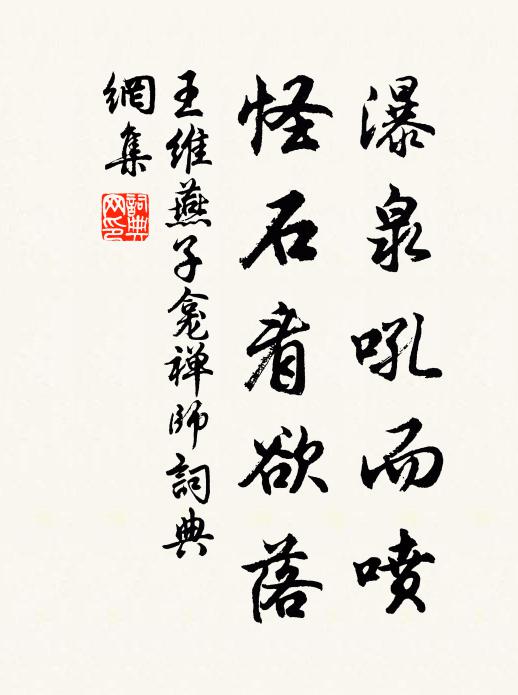 瀑泉吼而喷
怪石看欲落
王維燕子龛禅師詞典
網集
詞典
网印